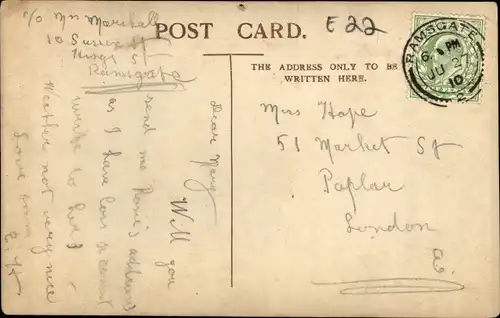 c/o Mrs Marshall
10 Sussex St
Kings St
Ramsgate
POST CARD.
E 22
THE ADDRESS ONLY TO BE
WRITTEN HERE.
RAMSGATE
PM
JU 27
10
Miss Hope
51 Market St
Poplar
London
E.
Dear Mary
Will you
send me Rosie's address
as I have lost &
write to her
Weather not very nice
Love from
E. H